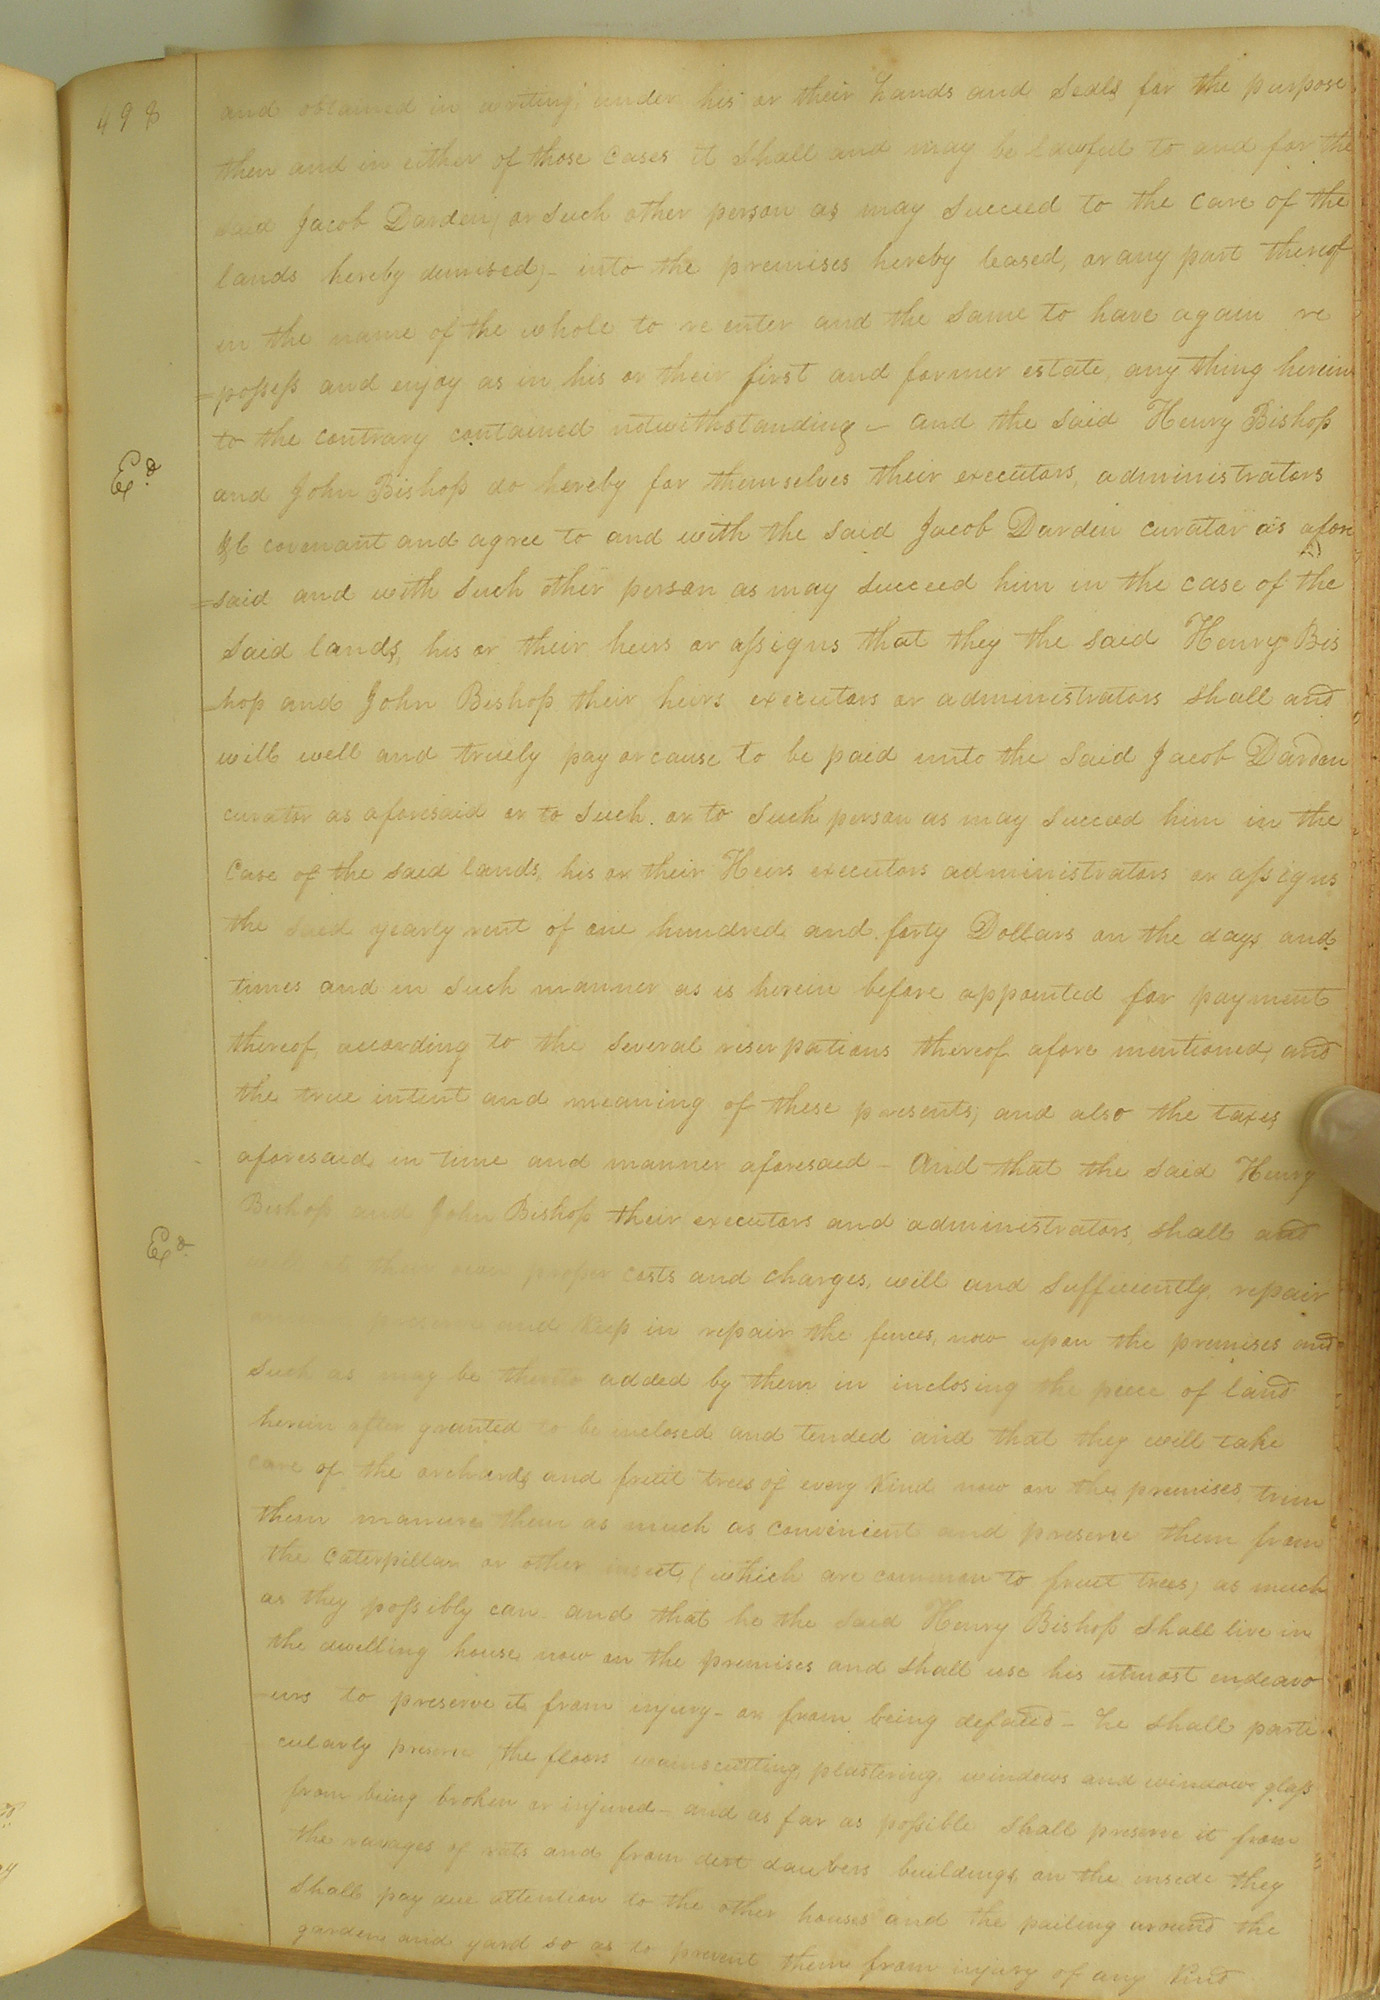 498
and obtained in writing under his or their hands and Seals for the purpose
then and in either of those cases it shall and may be lawful to and for the
said Jacob Darden, or such other person as may succeed to the care of the
lands hereby demised,- into the premises hereby leased, or any part thereof
in the name of the whole to re enter and the same to have again re
=possess and enjoy as in his or their first and former estate, any thing herein
to the contrary contained notwithstanding - and the said Henry Bishop
Ed
and John Bishop do hereby for themselves their executors, administrators
&c covenant and agree to and with the said Jacob Darden curator as afore
=said and with such other person as may succeed him in the case of the
said lands, his or their heirs or assigns that they the said Henry Bis
hop and John Bishop their heirs executors or administrators shall and
will well and truely pay or cause to be paid unto the said Jacob Darden
curator as aforesaid or to such. or to such person as may succeed him in the
Care of the said lands, his or their Heirs executors administrators or assigns
the said yearly rent of one hundred and forty Dollars on the days and
times and in such manner as is herein before appointed for payment
thereof, according to the several reservations thereof afore mentioned, and
the true intent and meaning of these presents, and also the taxes
aforesaid in time and manner aforesaid - And that the said Henry
Bishop and John Bishop their executors and administrators, shall and
Ed
their own proper costs and charges, will and sufficiently, repair
and keep in repair the fences, now upon the premises and
such as may be thereto added by them in inclosing the piece of land
herein after granted to be inclosed and tended and that they will take
care of the orchards and fruit trees of every kind now on the premises, trim
them manure them as much as convenient and preserve them from
the Caterpillar or other insect, (which are common to fruit trees) as much
as they possibly can and that he the said Henry Bishop shall live in
the dwelling house now on the premises and shall use his utmost endeavo
urs to preserve it from injury - or from being defaced - he shall parti
cularly preserve the floors wainscutting, plastering, windows and window glass
from being broken or injured - and as far as possible shall preserve it from
the ravages of rats and from dirt daubers buildings on the inside they
shall pay due attention to the other houses and the pailing around the
garden and yard so as to prevent them from injury of any kind